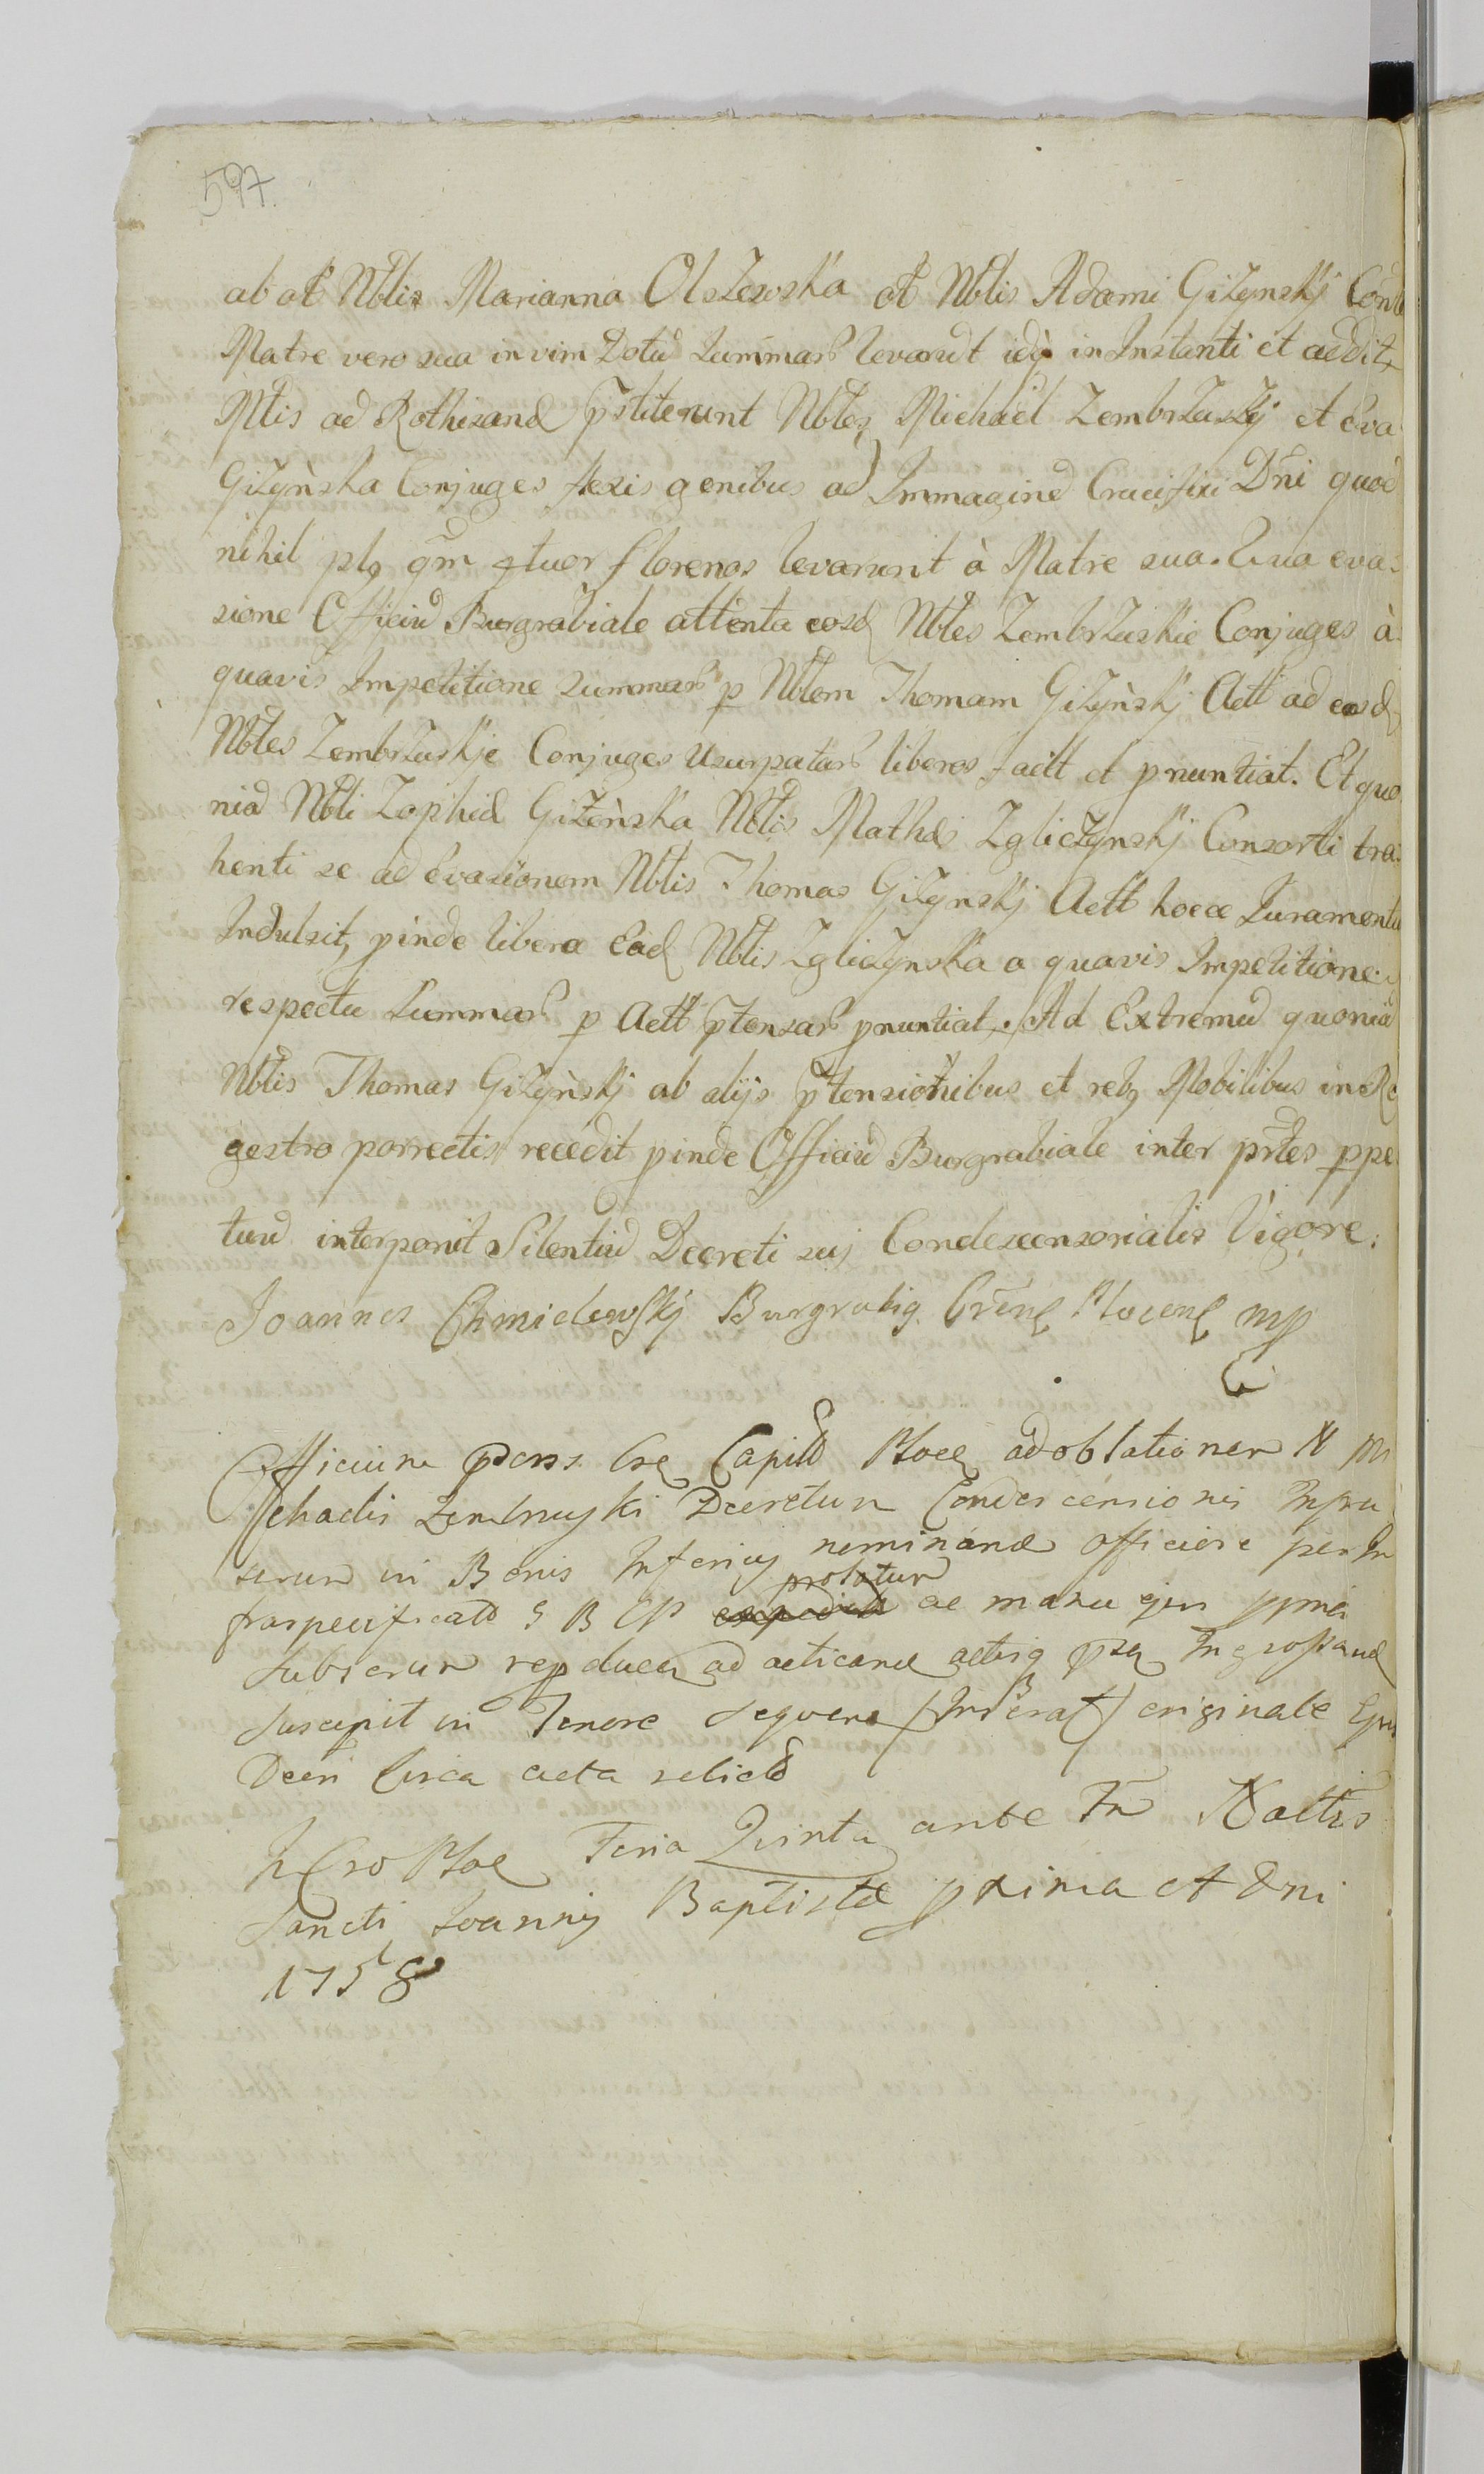 597.
ab ab Nblis Marianna Olszewska et Nblis Adami Giżynskj
Matre vero sua in vim Dotu Summar levarut idq in Instanti et
Ntis ad Rothisand pstiterunt Nbles Michael Zembrzuskj et Eva
Giżyńska Conjuges flexis genibus ad Immagine Crucifixi Dni quod
nihil plq qm qtuor florenos levarunt à Matre sua. Qua eva-
sione Officiu Burgrabiale attenta eosd Nbles Zembrzuskie Conjuges à
quavis Impetitione Summar p Nblem Thomam Giżyńskj Actt ad eosd
Nbles Zembrzuskje Conjuges Usurpatar liberos facit et pnuntiat. Et quo
nia Nbli Zophia Giżeńska Nblis Mathei Zgliczynskj Consorti tra-
henti se ad Evasionem Nblis Thomas Giżynskj Actt hocce Juramentu
Indulsit, pinde libera Ead Nblis Zgliczynska a quavis Impetitione
respectu Summar p Actt ptensar pnuntiat. Ad Extremu quonia
Nblis Thomas Giżyńskj ab alijs ptensionibus et rebq Mobilibus in Re
gestro porrectis recedit pinde Officiu Burgrabiale inter prtes ppe
tuu interponit Silentiu Decreti suj Condescensorialis Vigore.
Joannes Chmielewskj Burgrabig Crens Plocens mp
Officium pens Cre Capitl Ploce ad oblationem N Mi
chaelis Zembrzuski Decretum Condescensionis
in Bonis Inferius nominand officiose per In
fraspecificat S B CP probatum ac manu ejus ppria
Subscrum ad acticand actisq Ingrossand
suscepit in Tenore sequens (Inserat) originale
Circa acta relicto
In Cro Ploc Feria Quinta ante Fm Natt
Sancti Joannis Baptistæ prima A Dni
1758